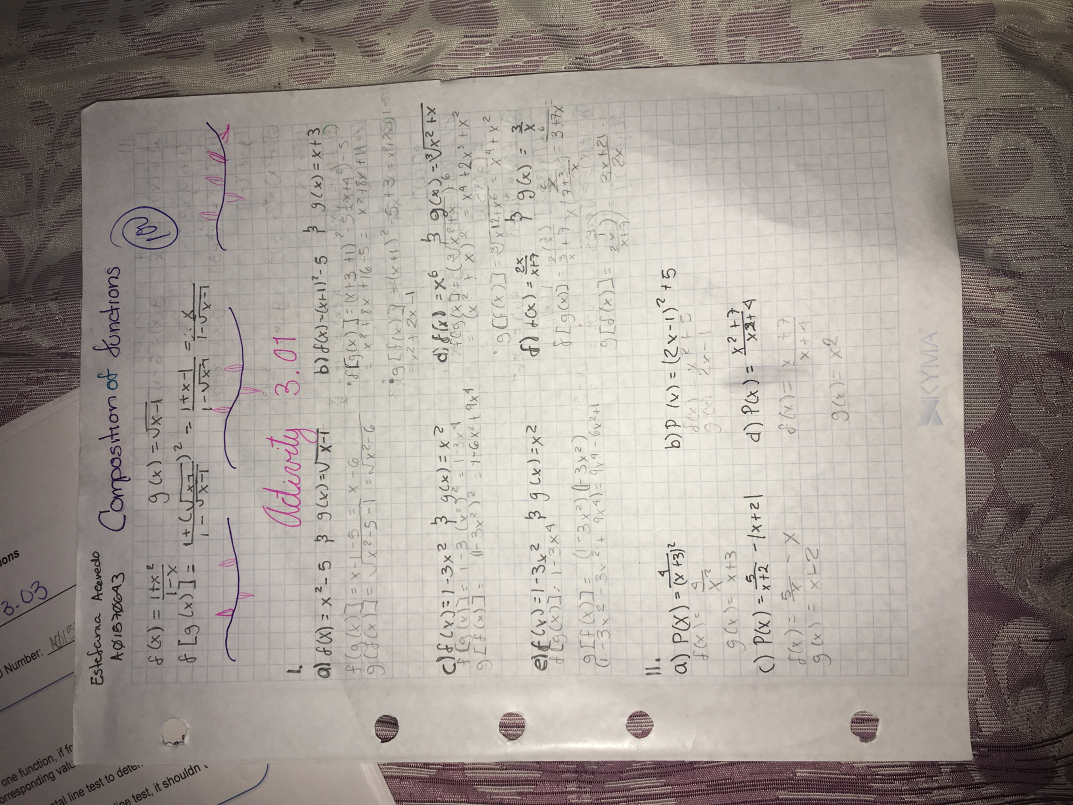 Estefania Acevedo
A01570643 Composition of functions 100
f(x) = 1+x² / 1-x g(x) = √x-1
f[g(x)] = 1+(√x-1)² / 1-√x-1 = 1+x-1 / 1-√x-1 = x / 1-√x-1
Activity 3.01
I.
a) f(x) = x²-5 } g(x) = √x-1
f(g(x)] = x-1-5 = x-6
g(f(x)] = √x²-5-1 = √x²-6
b) f(x) = (x+1)²-5 } g(x) = x+3
f[g(x)] = (x+3+1)²-5 (x+4)²-5
= x²+8x+16-5 = x²+8x+11
g[f(x)] = (x+1)²-5+3 =
= x²+2x-1
c) f(x) = 1-3x² } g(x) = x²
f[g(x)] = 1-3(x²)² = 1-3x⁴
g[f(x)] = (1-3x²)² = 1-6x²+9x⁴
d) f(x) = x⁶ } g(x) = ³√x²+x
f[g(x)] = (³√x²+x)⁶
= (x²+x)² = x⁴+2x³+x²
g[f(x)] = ³√x¹²+x⁶ = x⁴+x²
e) f(x) = 1-3x² } g(x) = x²
f[g(x)] = 1-3x⁴
g[f(x)] = (1-3x²)(1-3x²)
(1-3x²-3x²+9x⁴) = 9x⁴-6x²+1
f) f(x) = 2x / x+7 } g(x) = 3/x
f[g(x)] =
g[f(x)] = 3x+21 / 2x
II.
a) P(x) = 4 / (x+3)²
f(x) = 4 / x²
g(x) = x+3
b) P(x) = (2x-1)²+5
f(x) x²+5
g(x) 2x-1
c) P(x) = 5 / x+2 - |x+2|
f(x) = 5/x - x
g(x) = x-2
d) P(x) = x²+7 / x²+4
f(x) = x+7 / x+4
g(x) = x2
KYMA
ons
3.03
Number.
one function, if fr
orresponding valu
tal line test to deter
ine test, it shouldn't